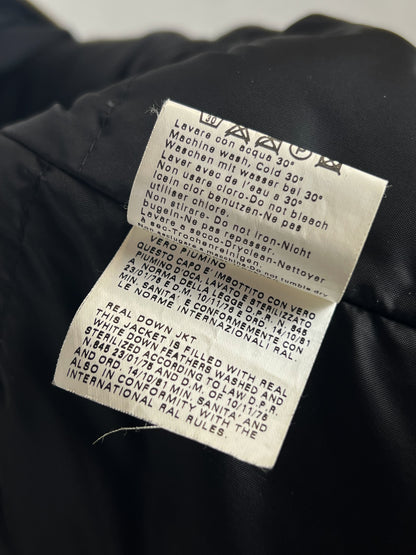 30
Lavare con acqua 30°
Machine wash, Cold 30°
Waschen mit wasser bei 30°
Laver avec de l'eau a 30°
Non usare cloro-Do not bleach
Icein clar benutzen-Ne pas
Non stirare. Do not iron-Nicht
bugeln-Ne pas repasser.
a sec-Trochenreinigen
a secco-Dryclean-Nettoyer
Do not tumble dry
VERO PIUMINO
QUESTO CAPO E' IMBOTTITO CON VERO
PIUMINO D'OCA LAVATO E STERILIZZATO
A NORMA DELLA LEGGE D.P.R. N. 845
23/01/75 E D.M. 10/11/76 E ORD. 14/10/81
MIN. SANITA' E CONFORMEMENTE CON
LE NORME INTERNAZIONALI RAL.
REAL DOWN JKT
THIS JACKET IS FILLED WITH REAL
DOWN FEATHERS WASHED AND
STERILIZED ACCORDING TO LAW D.P.R.
N.845 23/01/75 AND D.M. OF 10/11/76
AND ORD. 14/10/81 MIN. SANITA' AND
ALSO IN CONFORMITY WITH THE
INTERNATIONAL RAL RULES.